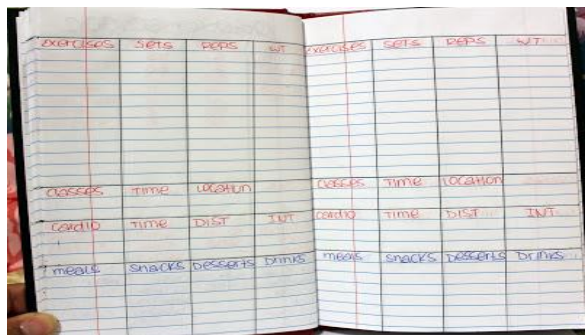 exercises sets reps WT
classes time location
cardio time DIST INT
meals snacks Desserts Drinks
exercises sets reps WT
classes time location
cardio time DIST INT
meals snacks Desserts Drinks